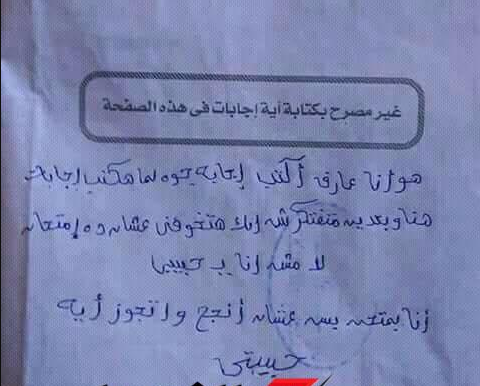 غير مصرح بكتابة أية إجابات فى هذه الصفحة
هو انا عارف أكتب إجابه جوه لما هكتب إجابات
هنا وبعدين متفتكرش انك هتخوفنى عشان ده إمتحان
لا مش انا يا حبيبى
أنا بمتحن بس عشان أنجح واتجوز أية
حبيبتى